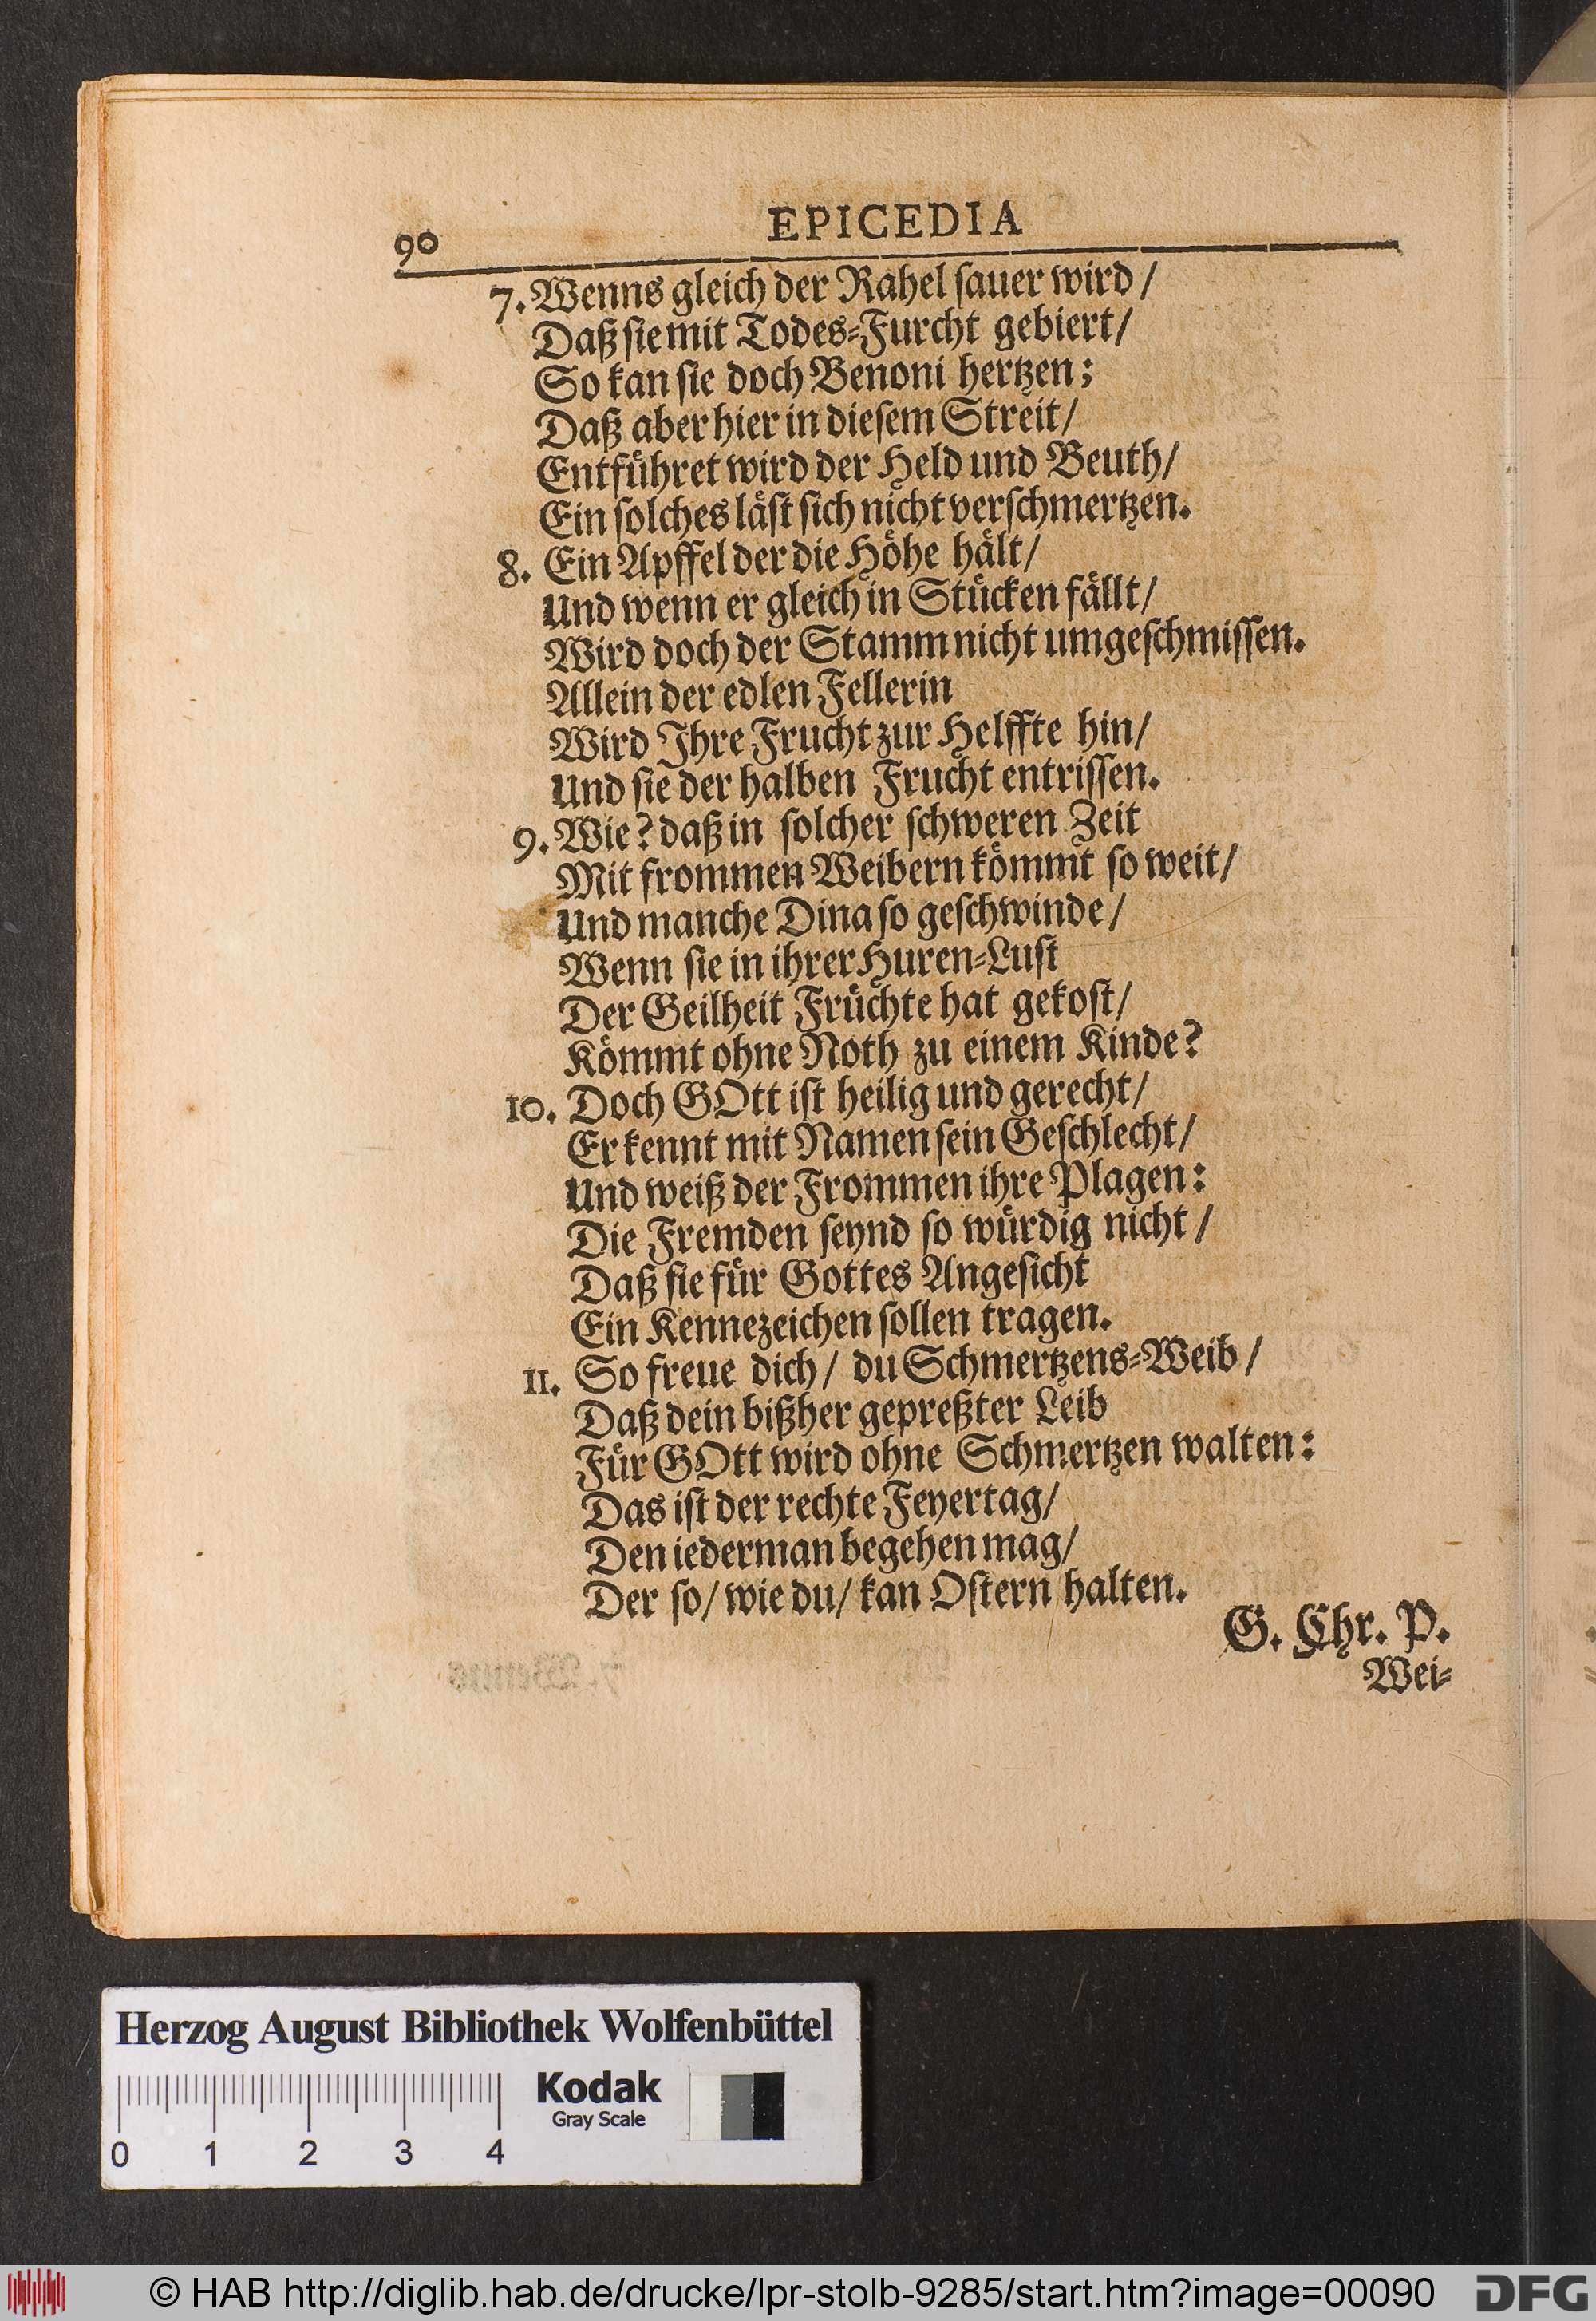 90
EPICEDIA
7. Wenns gleich der Rahel ſauer wird /
Daß ſie mit Todes-Furcht gebiert /
So kan ſie doch Benoni hertzen;
Daß aber hier in dieſem Streit /
Entführet wird der Held und Beuth /
Ein ſolches läſt ſich nicht verſchmertzen.
8. Ein Apffel der die Höhe hält /
Und wenn er gleich in Stücken fällt /
Wird doch der Stamm nicht umgeſchmiſſen.
Allein der edlen Fellerin
Wird Ihre Frucht zur Helffte hin /
Und ſie der halben Frucht entriſſen.
9. Wie? daß in ſolcher ſchweren Zeit
Mit frommen Weibern kömmt ſo weit /
Und manche Dina ſo geſchwinde /
Wenn ſie in ihrer Huren-Luſt
Der Geilheit Früchte hat gekoſt /
Kömmt ohne Noth zu einem Kinde?
10. Doch GOtt iſt heilig und gerecht /
Er kennt mit Namen ſein Geſchlecht /
Und weiß der Frommen ihre Plagen:
Die Fremden ſeynd ſo würdig nicht /
Daß ſie für Gottes Angeſicht
Ein Kennezeichen ſollen tragen.
11. So freue dich / du Schmertzens-Weib /
Daß dein bißher gepreßter Leib
Für GOtt wird ohne Schmertzen walten:
Das iſt der rechte Feyertag /
Den iederman begehen mag /
Der ſo / wie du / kan Oſtern halten.
G. Chr. P.
Wei-
Herzog August Bibliothek Wolfenbüttel
Kodak
Gray Scale
0 1 2 3 4
© HAB http://diglib.hab.de/drucke/lpr-stolb-9285/start.htm?image=00090
DFG